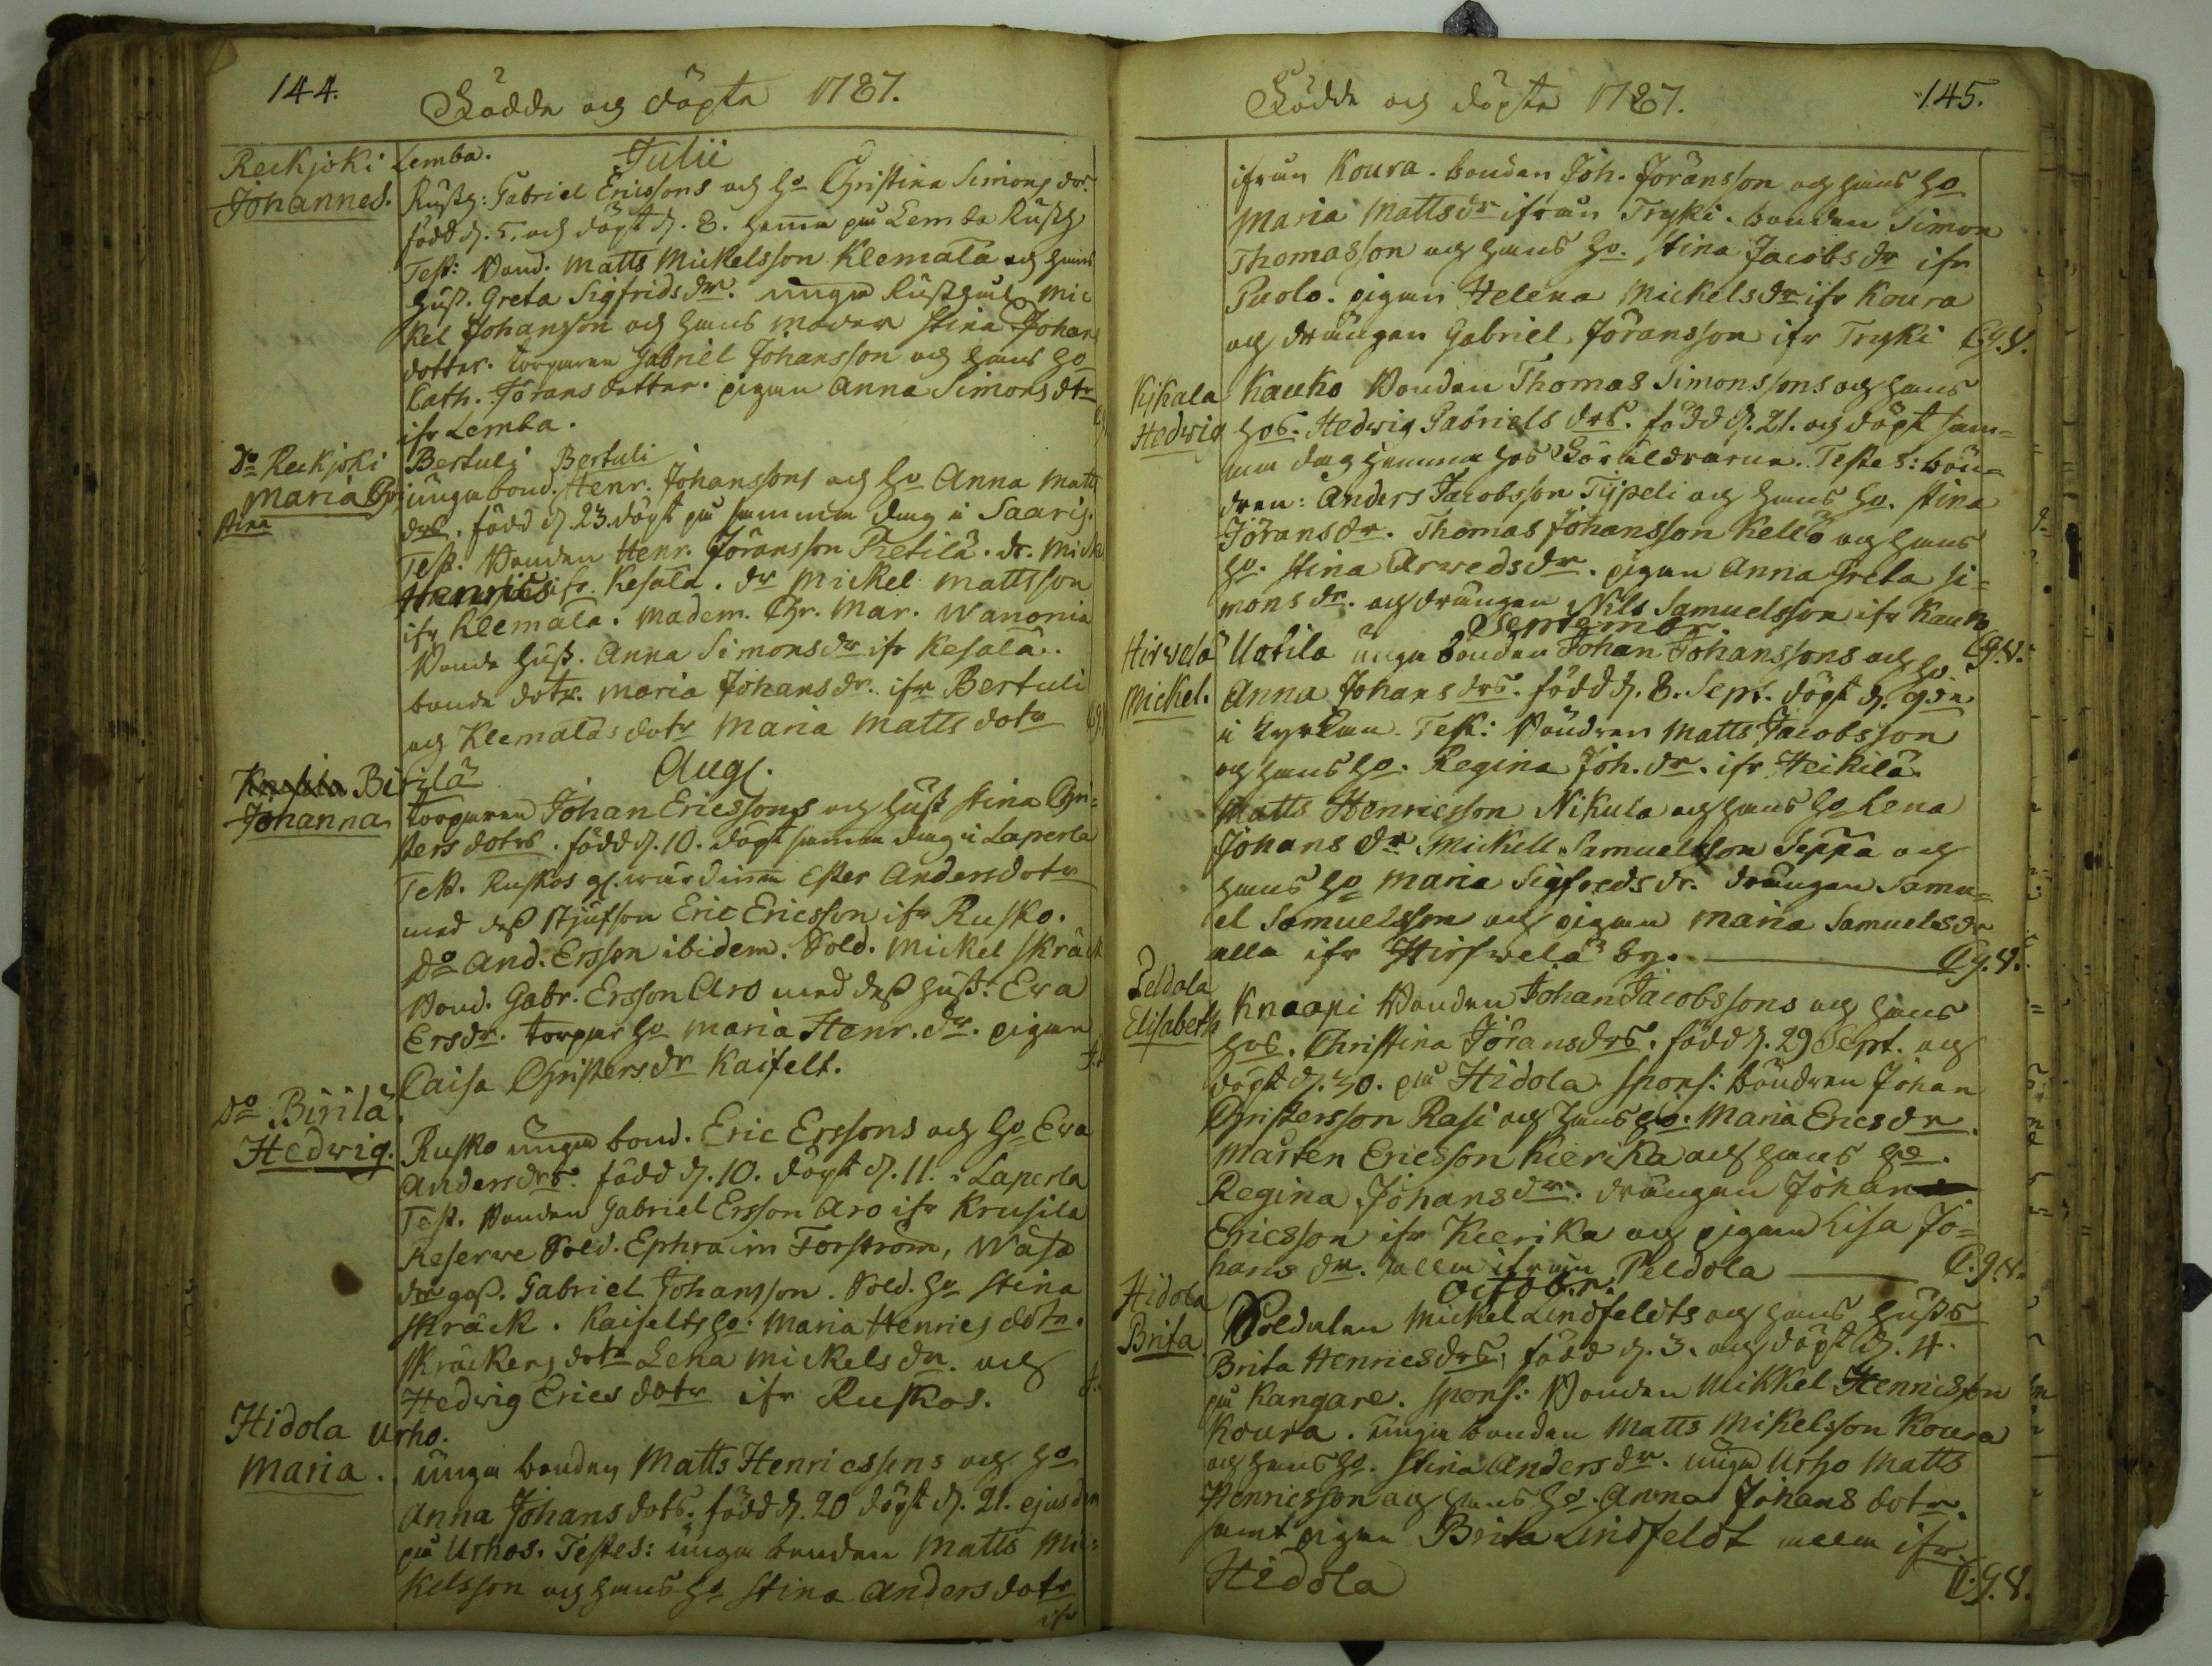 144.
Födda och döpta 1787.
Reckjoki Lemba. Julii
Johannes. Rusth: Gabriel Ericssons och ho Christina Simons dr.
född d. 5. och döpt d. 8. hemma på Lemba Rusth
Test: Bond. Matts Mickelsson Klemala och hans
hust. Greta Sigfrids dr. unga Rusth Mic
kel Johansson och hans moder Stina Johans
dotter. torparen Gabriel Johansson och hans ho
Cath. Jörans dotter. pigan Anna Simons dtr
ifr Lemba.
Do Reckjoki Bertuli Bertuli
Maria Chri unga bond. Henr. Johanssons och ho Anna Matts
stina drs. född d 23. döpt på samma dag i Saaris.
Test. Bonden Henr. Jöransson Pietilä. dr. Mick
Henrics ifr. Kesala. dr Mickel Mattsson
ifr Klemala. Madem. Chr. Mar. Wanonia
Bonde hust. Anna Simons dr ifr Kesala.
bonde dotr. Maria Johans dr. ifr Bertuli
och Klemalas dotr Maria Matts dotr
Birilä Aug.
Johanna torparen Johan Ericssons och hust Stina Chri=
sters dotrs. född d. 10. döpt samma dag i Laperla
Test. Ruskos gl. wärdinna Ester Anders dotr
med dess stjufson Eric Ericsson ifr Rusko.
Do And. Ersson ibidem. Sold. Mickel Skräck
Bond. Gabr. Ersson Aro med dess hust: Ewa
Ers dr. torpar ho Maria Henr. dr. pigan
Caisa Christers dr Kaifelt.
Do Birilä
Hedwig. Rusko unga bond. Eric Erssons och ho Ewa
Anders drs. född d. 10. döpt d. 11. i Laperla
Test. Bonden Gabriel Ersson Aro ifr Krusila
Reserwe Sold. Ephraim Forström, Wasa
dr goss. Gabriel Johansson. Sold. ho Stina
Skräck. Kaifelts ho. Maria Henrics dotr.
Skräckens dotr Lena Mickels dr. och
Hedwig Erics dotr ifr Ruskos.
Hidola Urho.
Maria. unga bonden Matts Henricssons och ho
Anna Johans dots. född d. 20 döpt d. 21. ejusdem
på Urhos. Testes: unga bonden Matts Mi=
kelsson och hans ho Stina Anders dotr
ifr
Födda och döpta 1787.
145.
ifrån Koura. bonden Joh. Jöransson och hans ho
Maria Matts dr ifrån Tryki. bonden Simon
Thomasson och hans ho. Stina Jacobs dr ifr
Puolo. pigan Helena Mickels dr ifr Koura
och drängen Gabriel Jöransson ifr Tryki C.g.V.
Kjkala Kauko Bonden Thomas Simonssons och hans
Hedwig hos. Hedwig Gabriels drs. född d. 21. och döpt sam=
ma dag hemma hos Föräldrarne. Testes: bön=
dren: Anders Jacobsson Tijpeli och hans ho. Stina
Jörans dr. Thomas Johansson Kellö och hans
ho. Stina Arweds dr. pigan Anna Greta Si=
mons dr. och drängen Nils Samuelsson ifr Kauko
September. C.g.V.
Hirwelä Uotila unga bonden Johan Johanssons och ho
Mickel. Anna Johans drs. född d. 8. Sept. döpt d. 9de
i kyrkan. Test: Böndren Matts Jacobsson
och hans ho. Regina Joh. dr. ifr Heikilä.
Matts Henricsson Nikula och hans ho Lena
Johans dr Mickell Samuelsson Seppä och
hans ho Maria Sigfreds dr. drängen Samu=
el Samuelsson och pigan Maria Samuels dr
alla ifr Hirswelä by. C.g.V.
Peldola Knaapi Bonden Johan Jacobssons och hans
Elisabeth hos. Christina Jörans drs. född d. 29 Sept. och
döpt d. 30. på Hidola. Spons: böndren Johan
Christersson Rasi och hans ho. Maria Erics dr
Mårten Ericsson Kierika och hans ho.
Regina Johans dr. drängen Johan
Ericsson ifr Kierika och pigan Lisa Jo=
hans dr. alla ifrån Peldola C.g.V.
Octobr.
Hidola Soldaten Mickel Lindfeldts och hans husts
Brita Brita Henrics drs, född d. 3. och döpt d. 4.
på Kangare. Spons: Bonden Mikkel Henricsson
Koura. unga bonden Matts Mikelsson Koura
och hans ho. Stina Anders dr. unga Urho Matts
Henricsson och hans ho. Anna Johans dotr
samt pigan Brita Lindfeldt alla ifr
Hidola C.g.V.